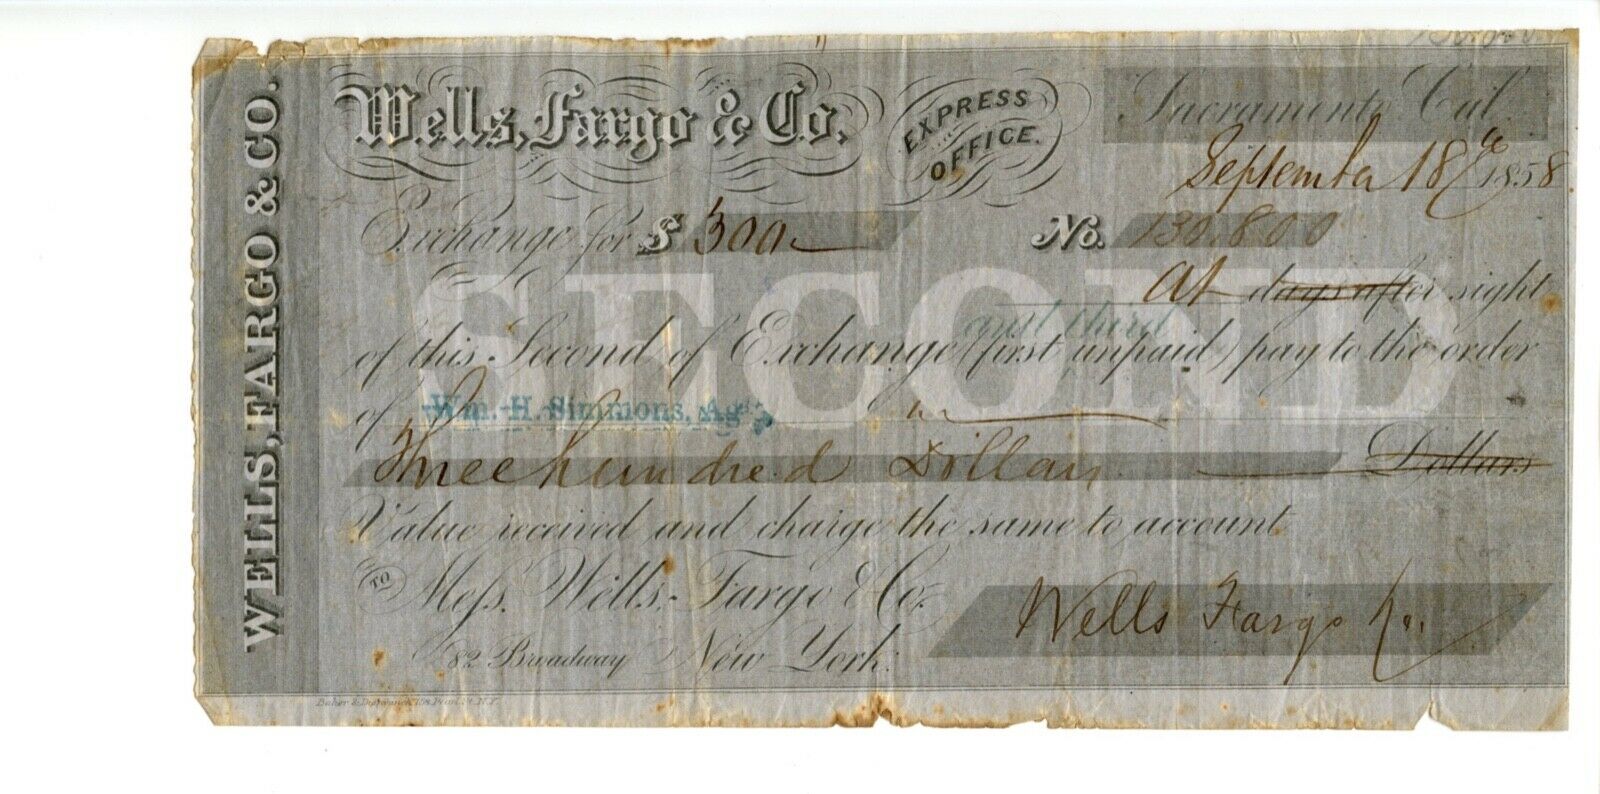 WELLS, FARGO & CO.
Wells, Fargo & Co.
EXPRESS OFFICE.
Sacramento Cal.
September 18th 1858.
Exchange for $ 300 No. 130.800
At days after sight
and third
of this Second of Exchange (first unpaid) pay to the order
of Wm. H. Simmons, Ag
Three hundred Dollars Dollars
Value received and charge the same to account.
TO Mess. Wells, Fargo & Co.
82 Broadway New York.
Wells Fargo Co.
SECOND